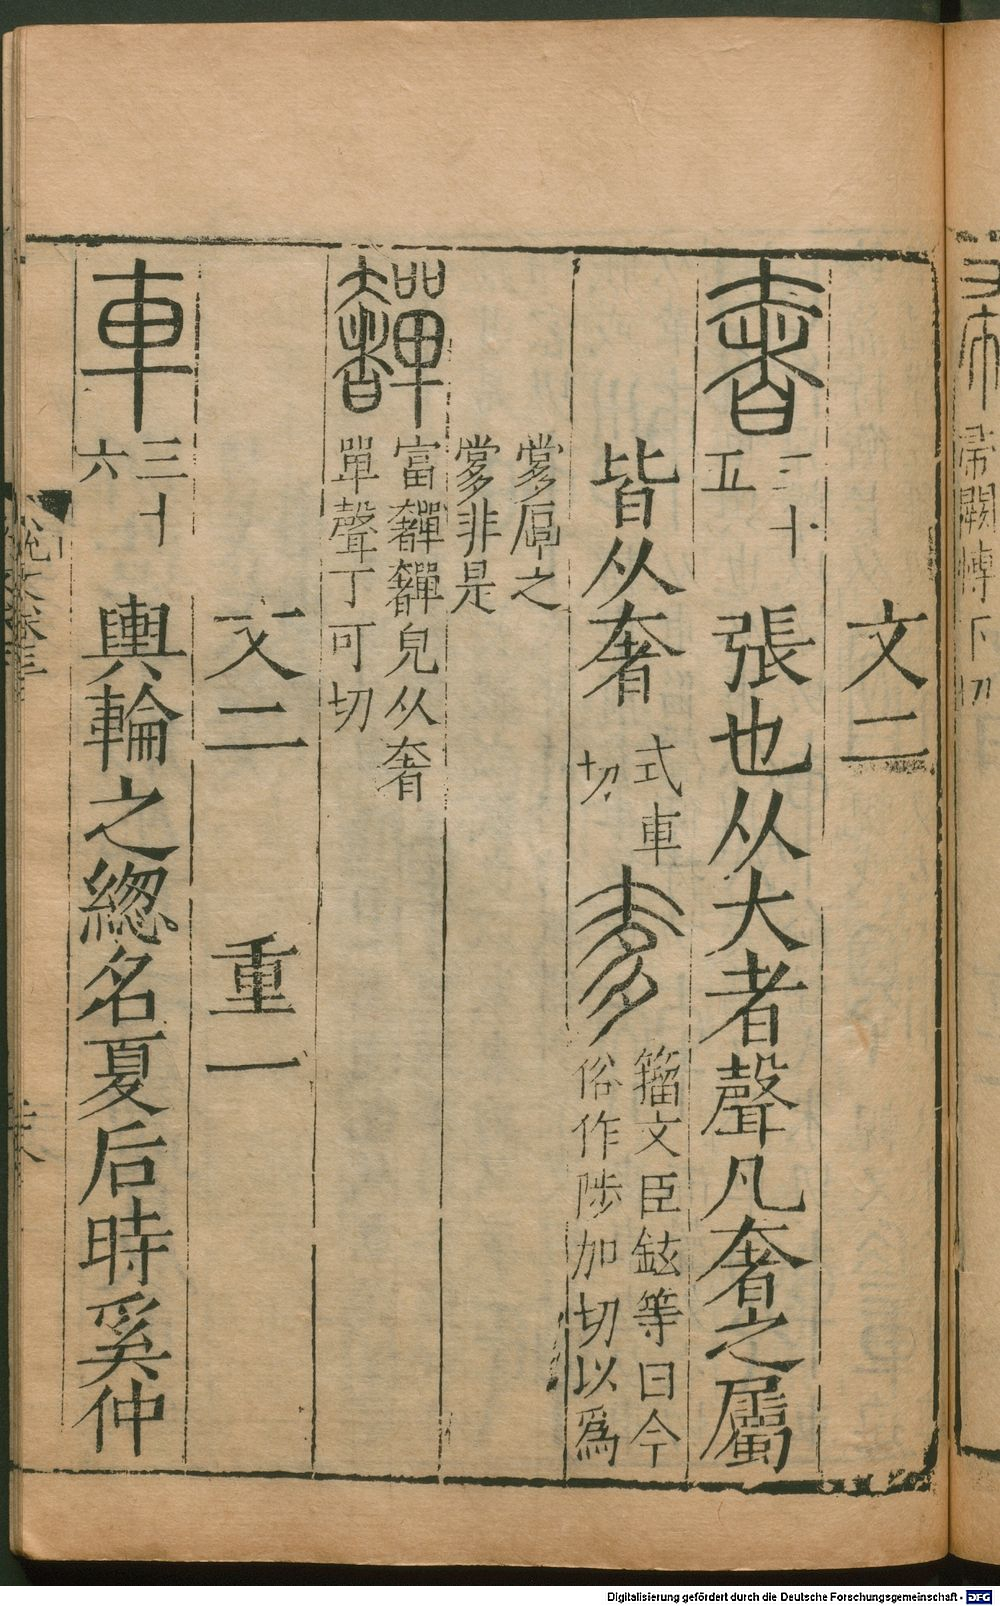 文二
奢 三十五 張也从大者聲凡奢之屬
皆从奢 式車切 奓 籀文臣鉉等曰今俗作陟加切以爲
奓厚之奓非是
奲 富奲奲皃从奢單聲丁可切
文二 重一
車 三十六 輿輪之緫名夏后時奚仲
Digitalisierung gefördert durch die Deutsche Forschungsgemeinschaft - DFG